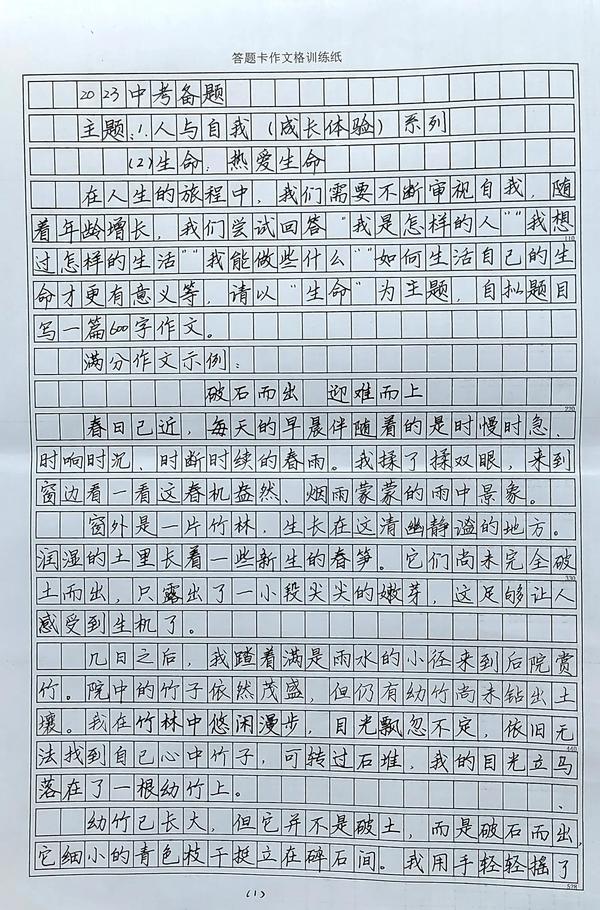 答题卡作文格训练纸
2023中考备题
主题:1.人与自我(成长体验)系列
(2)生命:热爱生命
在人生的旅程中,我们需要不断审视自我,随
着年龄增长,我们尝试回答"我是怎样的人""我想
110
过怎样的生活""我能做些什么""如何生活自己的生
命才更有意义等,请以"生命"为主题,自拟题目
写一篇600字作文。
满分作文示例:
破石而出 迎难而上
220
春日已近,每天的早晨伴随着的是时慢时急、
时响时沉、时断时续的春雨。我揉了揉双眼,来到
窗边看一看这春机盎然、烟雨蒙蒙的雨中景象。
窗外是一片竹林,生长在这清幽静谧的地方。
润湿的土里长着一些新生的春笋。它们尚未完全破
330
土而出,只露出了一小段尖尖的嫩芽,这足够让人
感受到生机了。
几日之后,我蹚着满是雨水的小径来到后院赏
竹。院中的竹子依然茂盛,但仍有幼竹尚未钻出土
壤。我在竹林中悠闲漫步,目光飘忽不定,依旧无
440
法找到自己心中竹子,可转过石堆,我的目光立马
落在了一根幼竹上。
幼竹已长大,但它并不是破土,而是破石而出,
它细小的青色枝干挺立在碎石间。我用手轻轻摇了
528
(1)